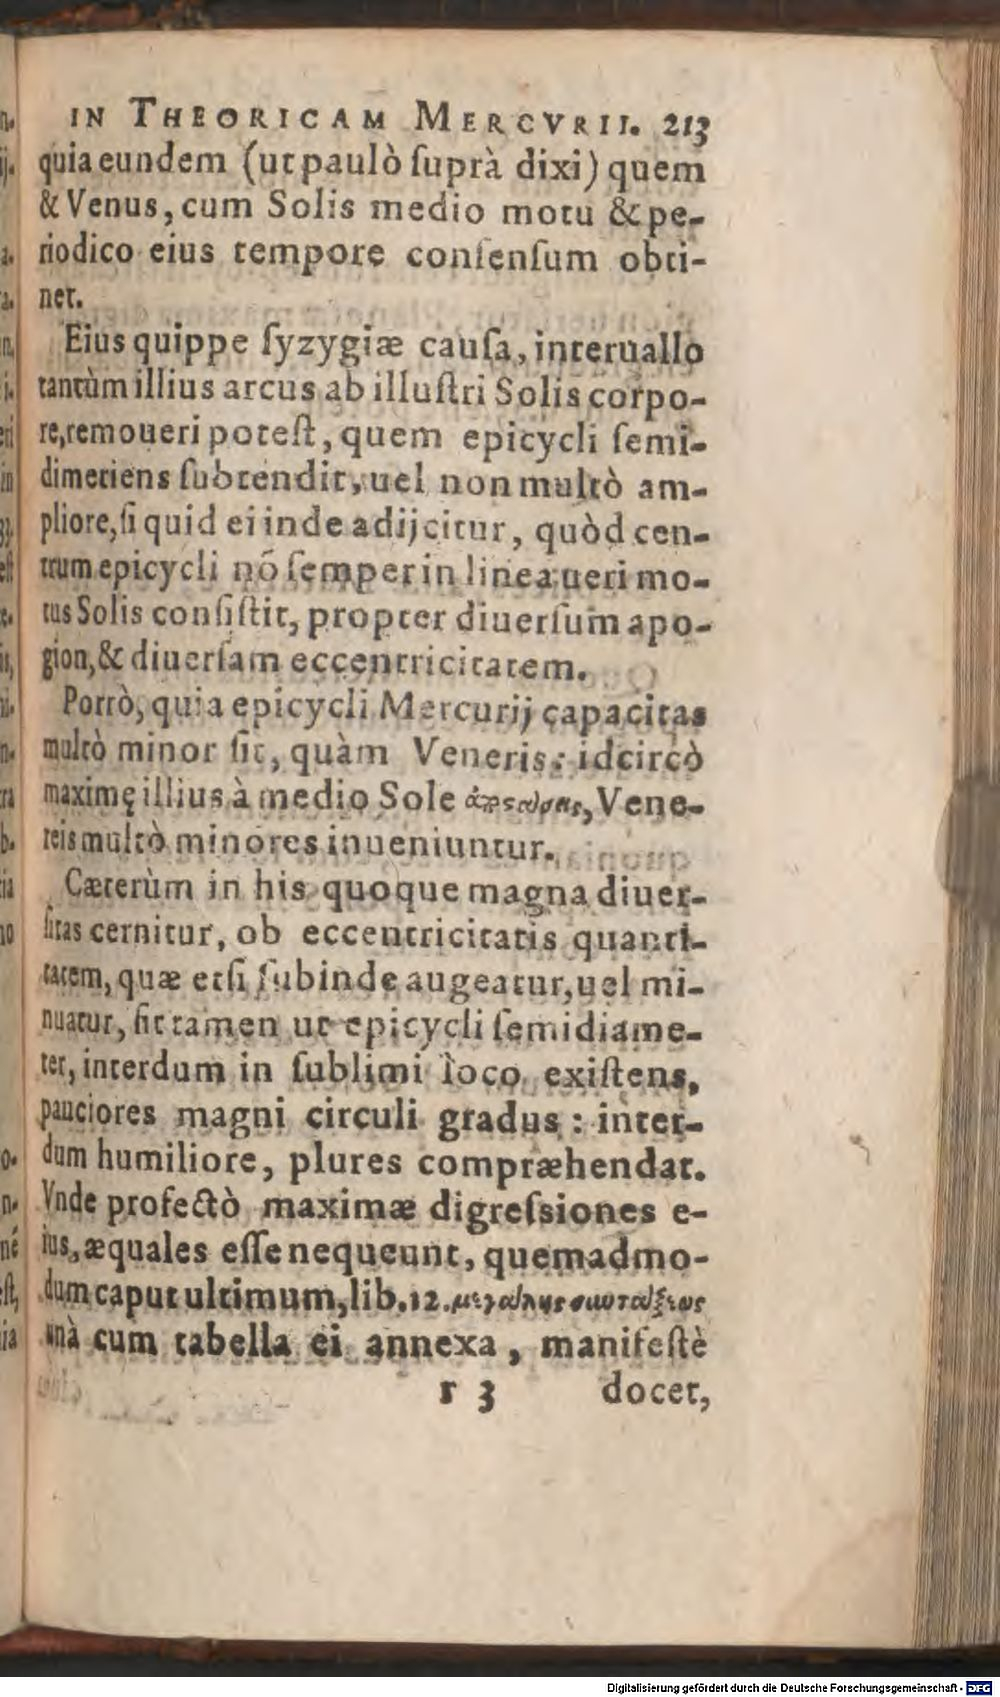 IN THEORICAM MERCVRII. 213
quia eundem (ut paulò ſuprà dixi) quem
& Venus, cum Solis medio motu & pe-
riodico eius tempore conſenſum obti-
net.
Eius quippe ſyzygiæ cauſa, interuallo
tantùm illius arcus ab illuſtri Solis corpo-
re, remoueri poteſt, quem epicycli ſemi-
dimetiens ſubtendit, uel non multò am-
pliore, ſi quid ei inde adijcitur, quòd cen-
trum epicycli nō ſemper in linea ueri mo-
tus Solis conſiſtit, propter diuerſum apo-
gion, & diuerſam eccentricitatem.
Porrò, quia epicycli Mercurij capacitas
multò minor ſit, quàm Veneris: idcircò
maximę illius à medio Sole Vene-
reis multò minores inueniuntur.
Cæterùm in his quoque magna diuer-
ſitas cernitur, ob eccentricitatis quanti-
tatem, quæ etſi ſubinde augeatur, uel mi-
nuatur, fit tamen ut epicycli ſemidiame-
ter, interdum in ſublimi loco exiſtens,
pauciores magni circuli gradus: inter-
dum humiliore, plures compræhendat.
Vnde profectò maximæ digreſsiones e-
ius, æquales eſſe nequeunt, quemadmo-
dum caput ultimum, lib. 12. μεγάλης συντάξεως
unà cum tabella ei annexa, manifeſtè
r 3 docet,
Digitalisierung gefördert durch die Deutsche Forschungsgemeinschaft - DFG